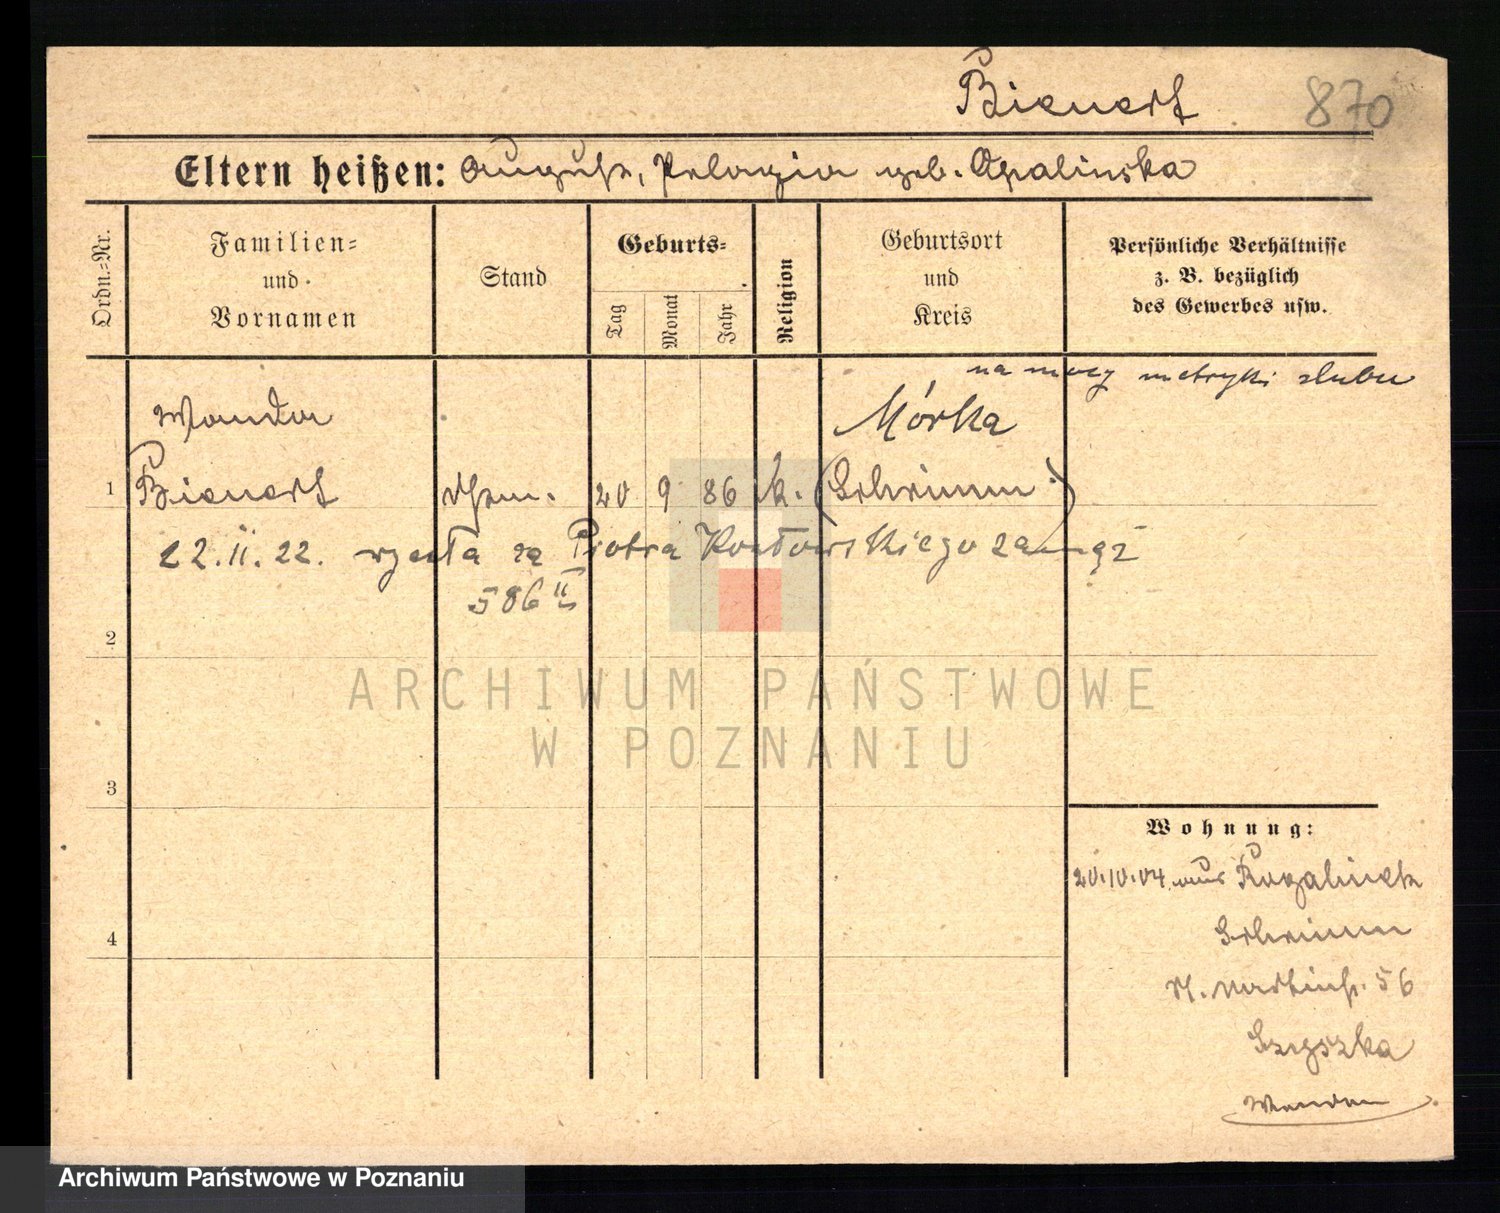 Bienert 870
Eltern heißen: August, Pelagia geb. Opalinska
Ordn.=Nr.
Familien=
und
Vornamen
Stand
Geburts=
Tag
Monat
Jahr
Religion
Geburtsort
und
Kreis
Persönliche Verhältnisse
z. B. bezüglich
des Gewerbes usw.
na mocy metryki ślubu
Wanda
Mórka
1 Bienert 20 9 86 k. (Schrimm)
22.11.22. za Piotra Kozłowskiego zamąż
586 II
2
ARCHIWUM PAŃSTWOWE
W POZNANIU
3
Wohnung:
20.10.04. aus Rogalinek
Schrimm
St. Martinstr. 56
4
Archiwum Państwowe w Poznaniu